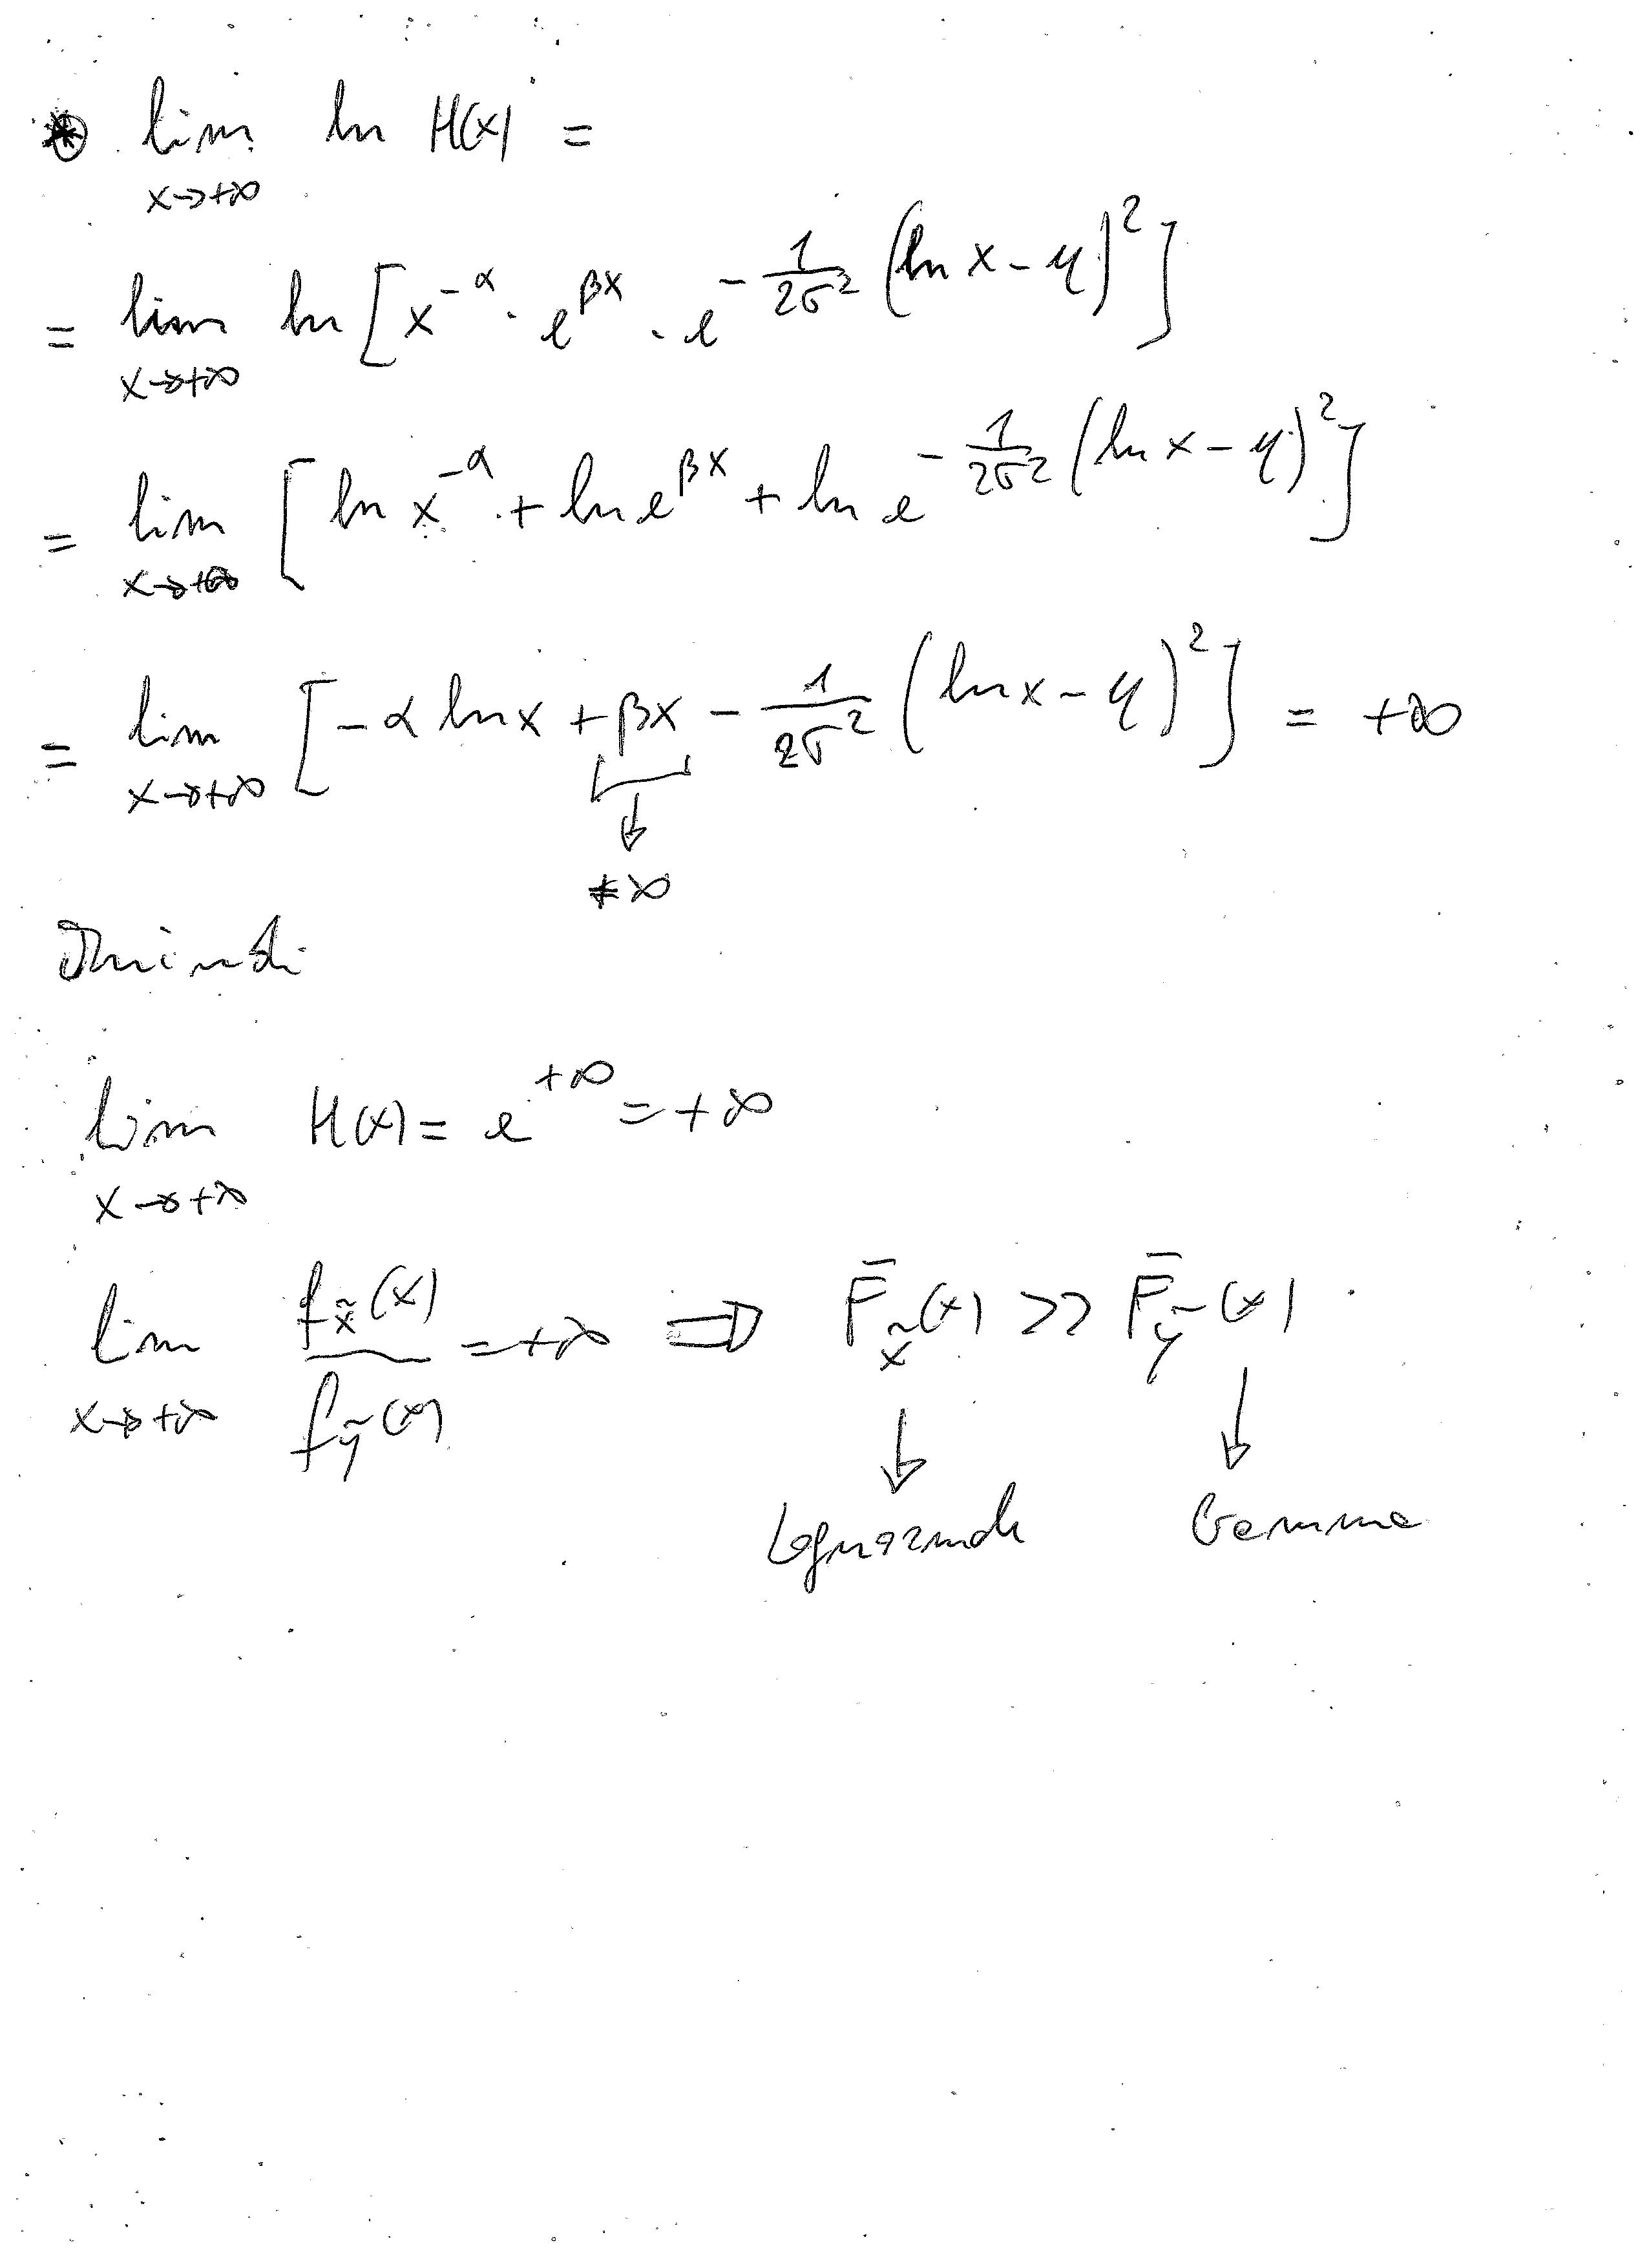 * lim ln H(x) =
x→+∞
= lim ln [x^{-α} · e^{βx} · e^{-\frac{1}{2σ^2}(ln x - μ)^2}]
x→+∞
= lim [ln x^{-α} + ln e^{βx} + ln e^{-\frac{1}{2σ^2}(ln x - μ)^2}]
x→+∞
= lim [-α ln x + βx - \frac{1}{2σ^2}(ln x - μ)^2] = +∞
x→+∞
↓
+∞
Quindi
lim H(x) = e^{+∞} = +∞
x→+∞
lim \frac{f_{x̃}(x)}{f_{ỹ}(x)} = +∞ ⇒ F̄_{x̃}(x) >> F̄_{ỹ}(x)
x→+∞
↓ ↓
Lognormale Gamma